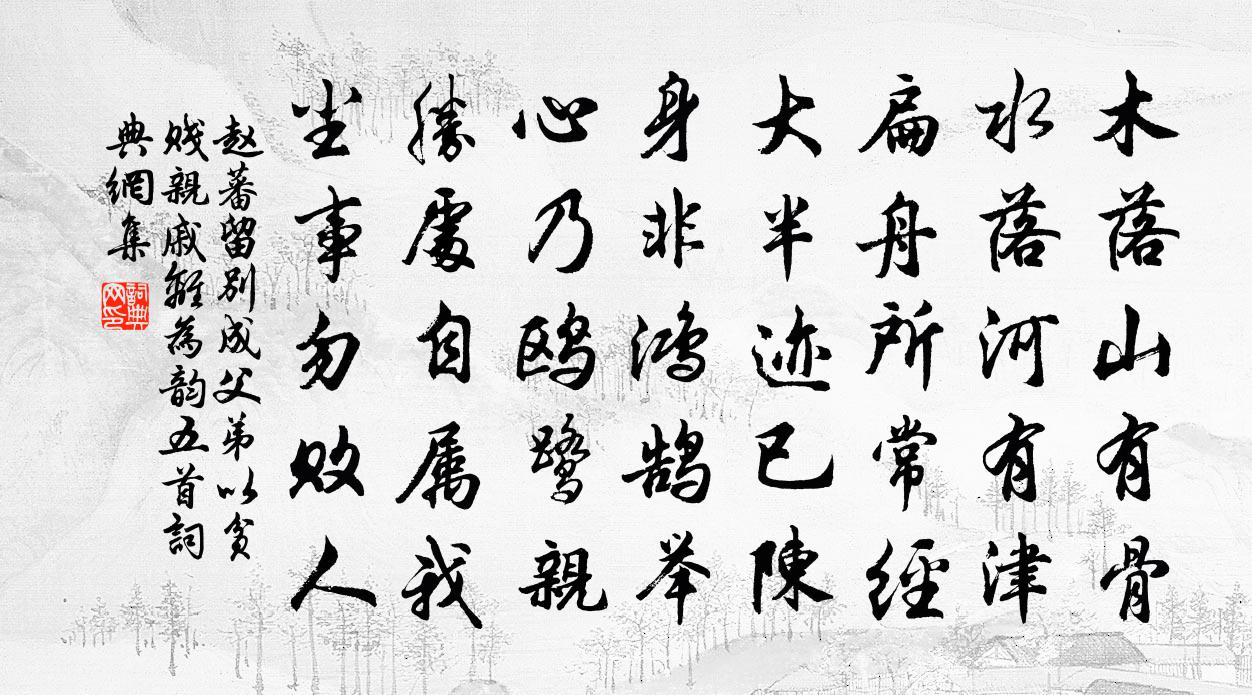 木落山有骨
水落河有津
扁舟所常经
大半迹已陳
身非鸿鹄举
心乃鸥鹭親
勝處自属我
尘事勿败人
赵蕃留别成父弟以贫
贱親戚離為韵五首詞
典網集
詞典网印